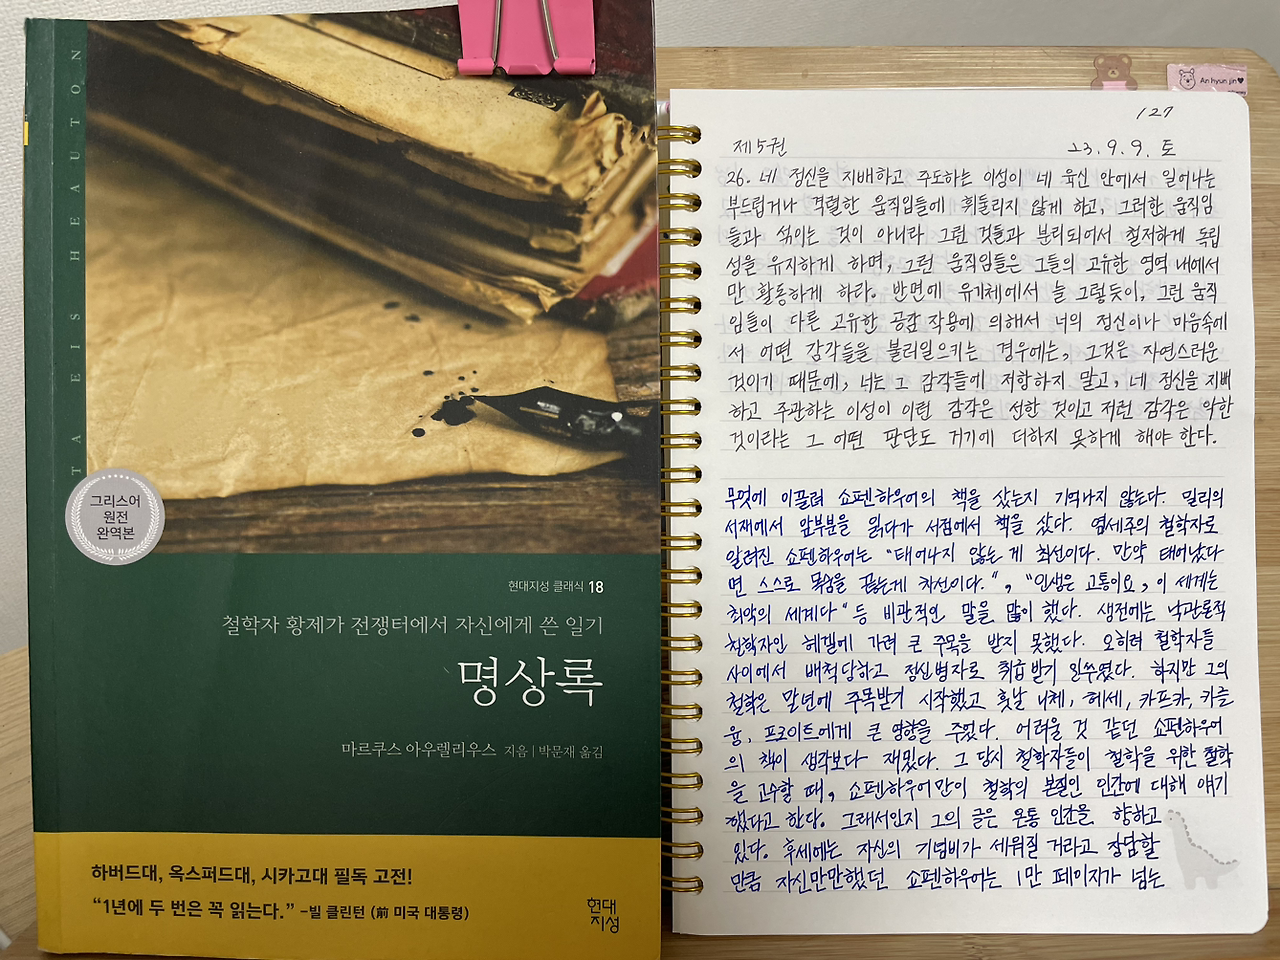 TA EIS HEAUTON
그리스어
원전
완역본
현대지성 클래식 18
철학자 황제가 전쟁터에서 자신에게 쓴 일기
명상록
마르쿠스 아우렐리우스 지음 | 박문재 옮김
하버드대, 옥스퍼드대, 시카고대 필독 고전!
“1년에 두 번은 꼭 읽는다.” –빌 클린턴 (前 미국 대통령)
현대
지성
An hyun jin♥
127
제5권 23.9.9. 토
26. 네 정신을 지배하고 주도하는 이성이 네 육신 안에서 일어나는
부드럽거나 격렬한 움직임들에 휘둘리지 않게 하고, 그러한 움직임
들과 섞이는 것이 아니라 그런 것들과 분리되어서 철저하게 독립
성을 유지하게 하며, 그런 움직임들은 그들의 고유한 영역 내에서
만 활동하게 하라. 반면에 유기체에서 늘 그렇듯이, 그런 움직
임들이 다른 고유한 공감 작용에 의해서 너의 정신이나 마음속에
서 어떤 감각들을 불러일으키는 경우에는, 그것은 자연스러운
것이기 때문에, 너는 그 감각들에 저항하지 말고, 네 정신을 지배
하고 주관하는 이성이 이런 감각은 선한 것이고 저런 감각은 악한
것이라는 그 어떤 판단도 거기에 더하지 못하게 해야 한다.
무엇에 이끌려 쇼펜하우어의 책을 샀는지 기억나지 않는다. 밀리의
서재에서 앞부분을 읽다가 서점에서 책을 샀다. 염세주의 철학자로
알려진 쇼펜하우어는 “태어나지 않는 게 최선이다. 만약 태어났다
면 스스로 목숨을 끊는게 차선이다.”, “인생은 고통이요, 이 세계는
최악의 세계다” 등 비관적인 말을 많이 했다. 생전에는 낙관론적
철학자인 헤겔에 가려 큰 주목을 받지 못했다. 오히려 철학자들
사이에서 배척당하고 정신병자로 취급받기 일쑤였다. 하지만 그의
철학은 말년에 주목받기 시작했고 훗날 니체, 헤세, 카프카, 카를
융, 프로이트에게 큰 영향을 주었다. 어려울 것 같던 쇼펜하우어
의 책이 생각보다 재밌다. 그 당시 철학자들이 철학을 위한 철학
을 고수할 때, 쇼펜하우어만이 철학의 본질인 인간에 대해 얘기
했다고 한당. 그래서인지 그의 글은 온통 인간을 향하고
있다. 후세에는 자신의 기념비가 세워질 거라고 장담할
만큼 자신만만했던 쇼펜하우어는 1만 페이지가 넘는